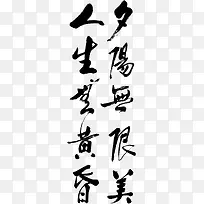 夕陽無限美
人生黄昏